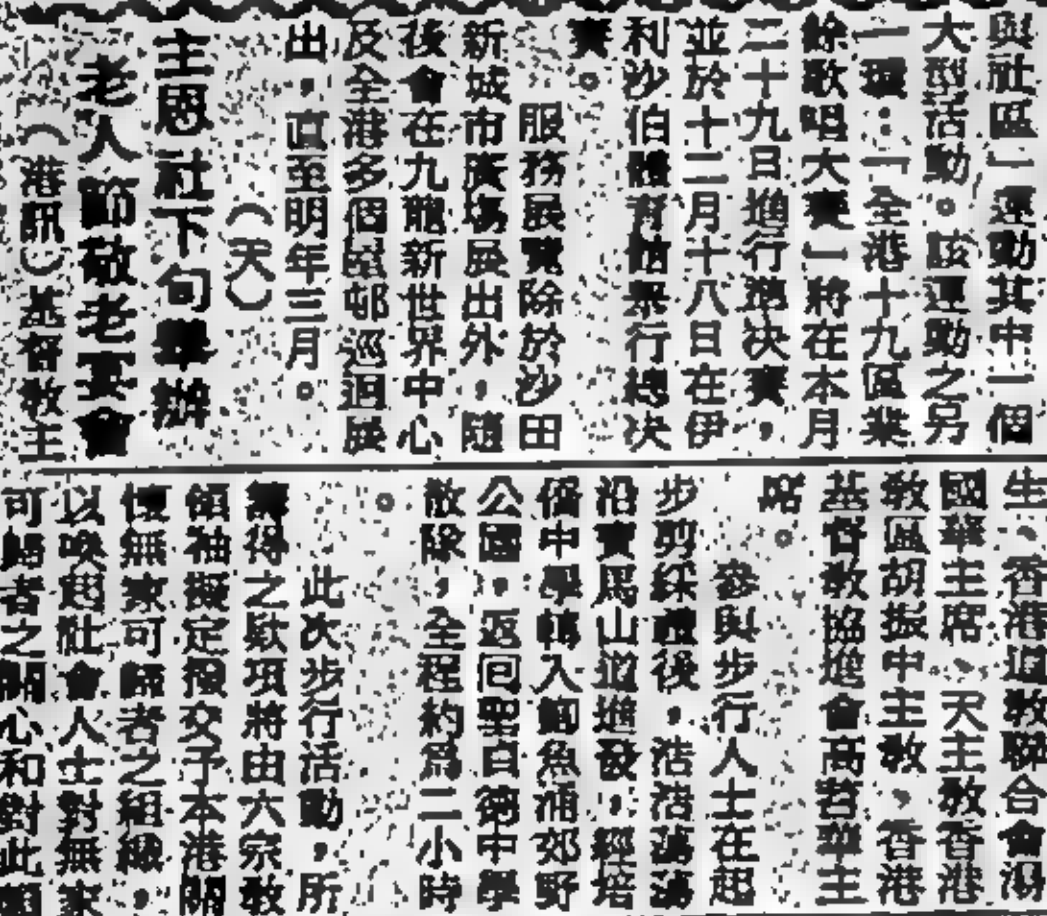 與社區」運動其中一個
大型活動。該運動之另
一環:「全港十九區業
餘歌唱大賽」將在本月
二十九日進行準決賽,
並於十二月十八日在伊
利沙伯體育館舉行總決
賽。
服務展覽除於沙田
新城市廣場展出外,隨
後會在九龍新世界中心
及全港多個屋邨巡迴展
出,直至明年三月。
(天)
主恩社下旬舉辦
老人節敬老宴會
(港訊)基督教主
生、香港道教聯合會湯
國華主席、天主教香港
教區胡振中主教,香港
基督教協進會高苕華主
席。
參與步行人士在起
步剪綵禮後,浩浩蕩蕩
沿寶馬山道進發,經培
僑中學轉入鰂魚涌郊野
公園,返回聖百德中學
散隊,全程約爲二小時
。
此次步行活動,所
籌得之欵項將由六宗敎
領袖擬定撥交予本港關
懷無家可歸者之組織,
以喚起社會人士對無家
可歸者之關心和對此